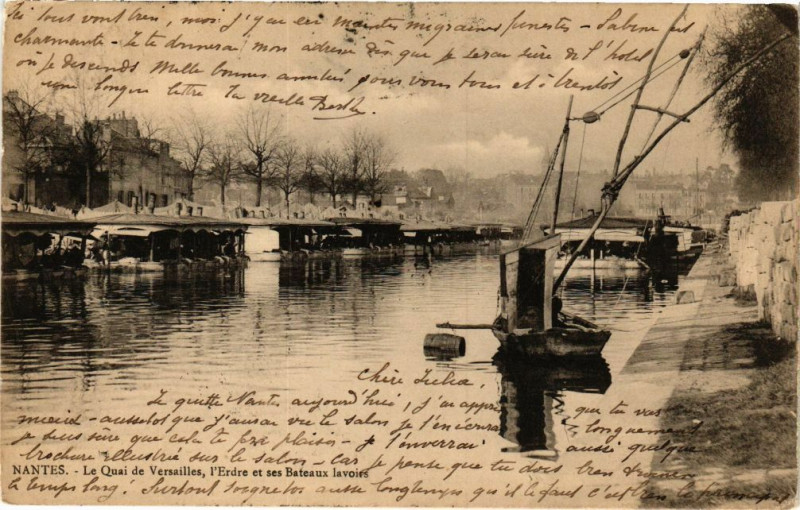 Chère Julia,
Je quitte Nantes aujourd'hui, j'ai appris que tu vas
mieux - aussitôt que j'aurai vu le salon je t'écrirai longuement
je suis sûre que cela te fera plaisir - je t'enverrai aussi quelque
brochure illustrée sur le salon - car je pense que tu dois bien trouver
le temps long! Surtout soignetoi aussi longtemps qu'il le faut c'est bien le principal
NANTES. - Le Quai de Versailles, l'Erdre et ses Bateaux lavoirs
tous vont bien, moi j'ai eu maintes migraines funestes - Sabine est
charmante - Je te donnerai mon adresse dès que je serai sûre de l'hotel
où je descends Mille bonnes amitiés pour vous tous et à bientôt
une longue lettre Ta vieille Berthe.